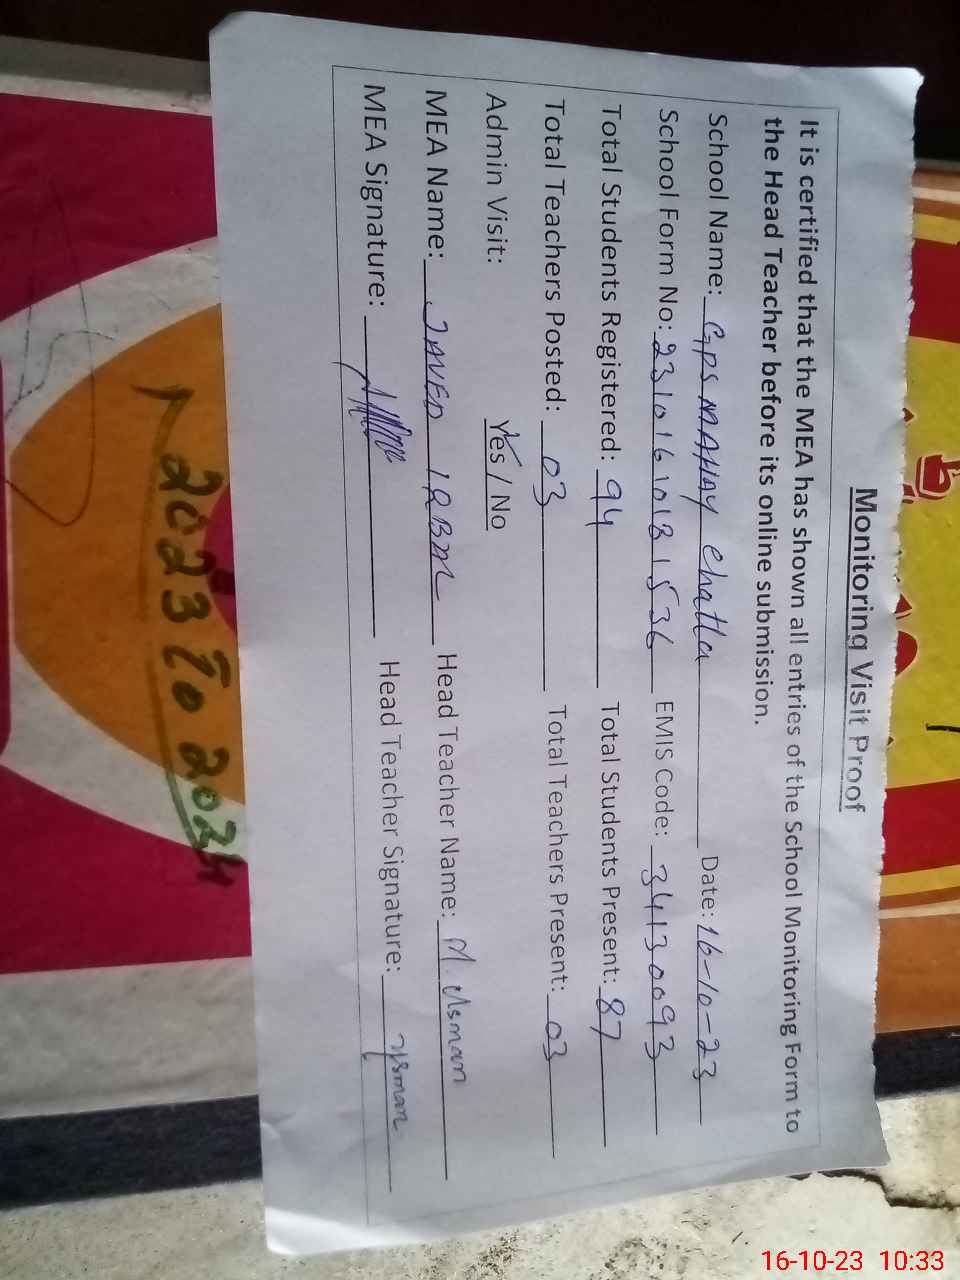 Monitoring Visit Proof
It is certified that the MEA has shown all entries of the School Monitoring Form to
the Head Teacher before its online submission.
School Name: GPS MAHAY Chatla Date: 16-10-23
School Form No: 23101610181536 EMIS Code: 34130093
Total Students Registered: 94 Total Students Present: 87
Total Teachers Posted: 03 Total Teachers Present: 03
Admin Visit: Yes / No
MEA Name: JAVED IQBAL Head Teacher Name: M. Usman
MEA Signature: Head Teacher Signature: Usman
2023 To 2024
16-10-23 10:33